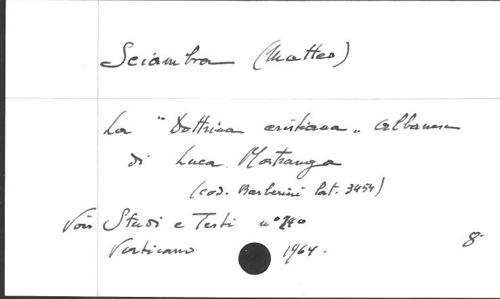 Sciambra (Matteo)
La "Dottrina cristiana" albanese
di Luca Matranga
(cod. Barberini Lat. 3454)
Voir Studi e Testi nº 240
Vaticano 1964.
8º